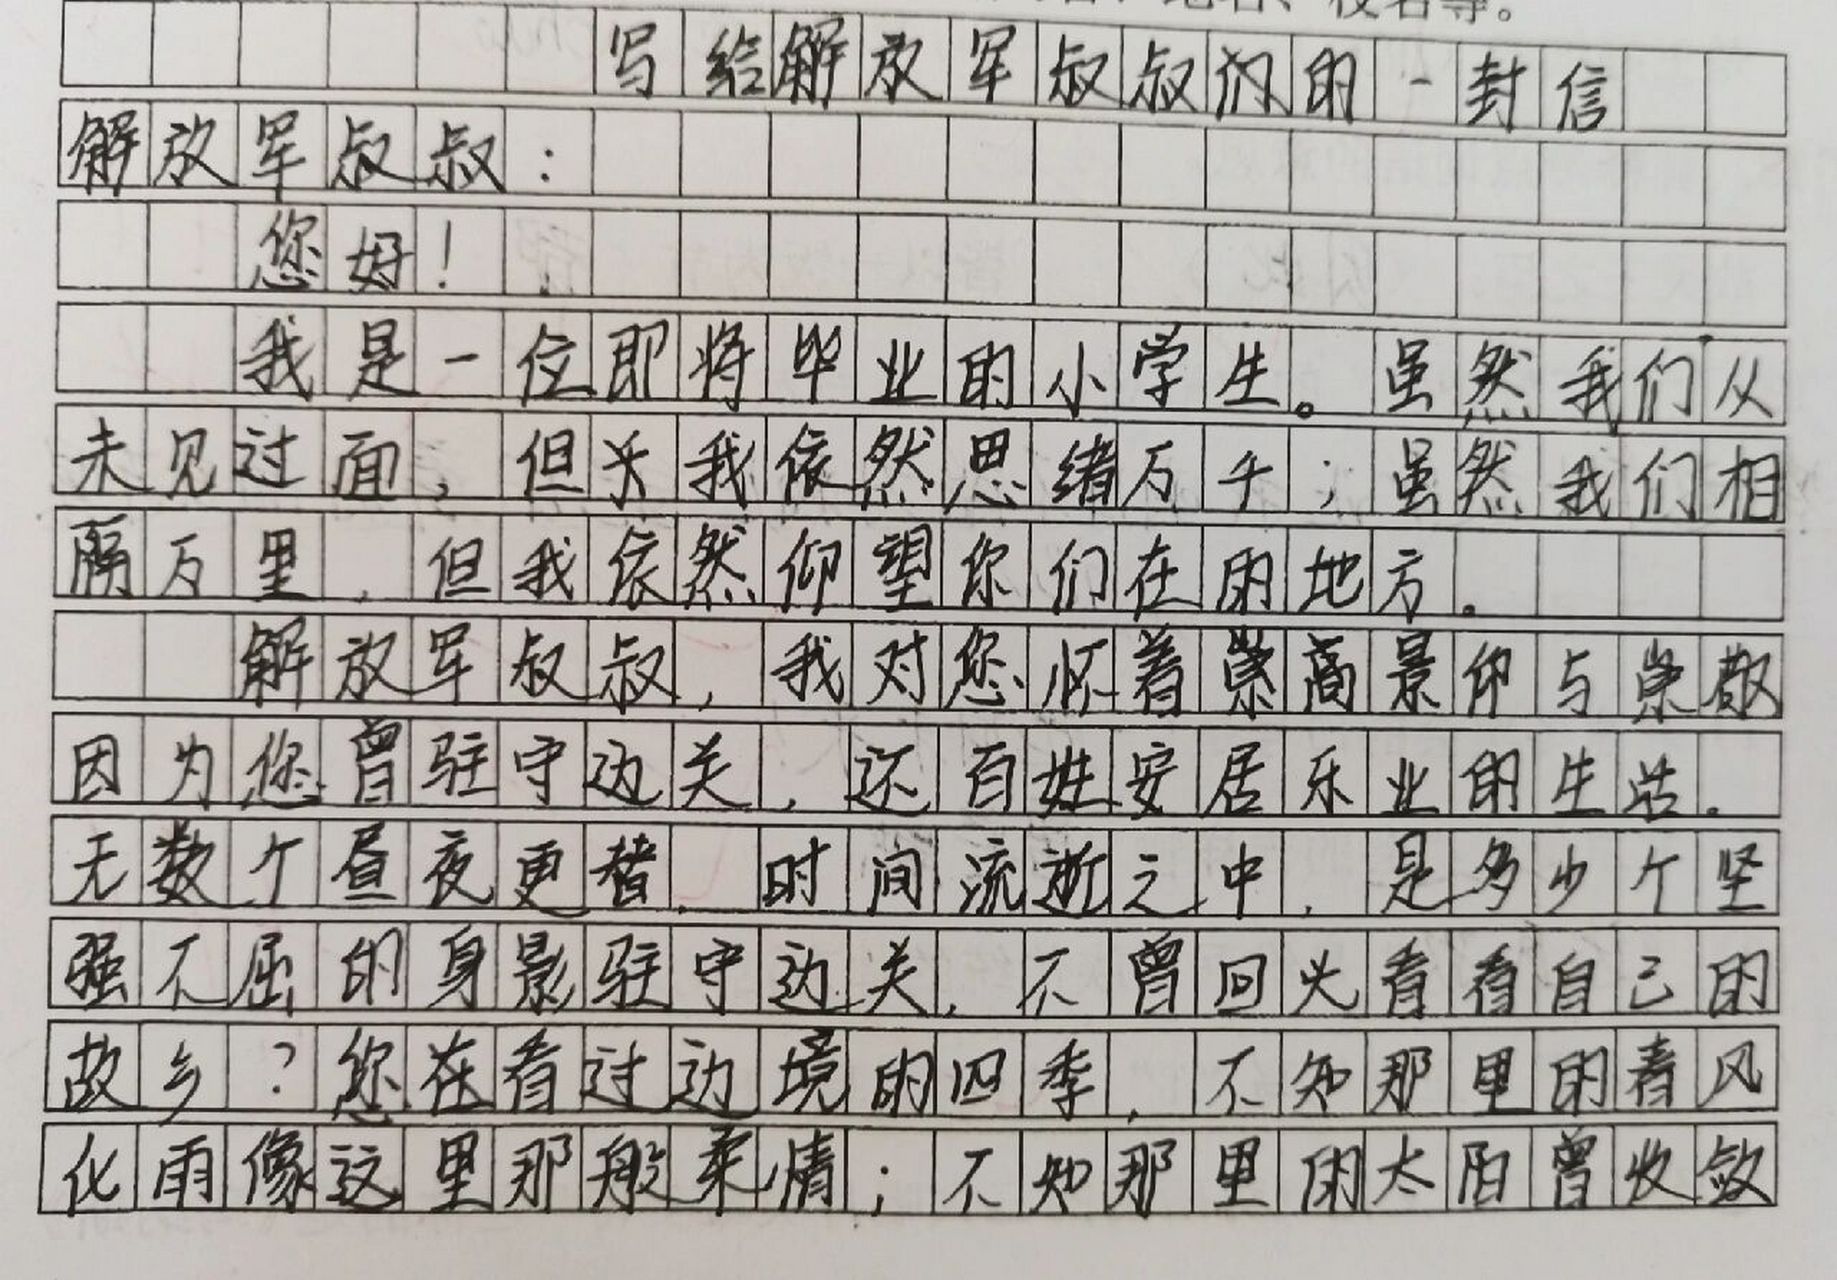 写给解放军叔叔们的一封信
解放军叔叔：
您好！
我是一位即将毕业的小学生。虽然我们从
未见过面，但我依然思绪万千；虽然我们相
隔万里，但我依然仰望你们在的地方。
解放军叔叔，我对您怀着崇高景仰与崇敬
因为您曾驻守边关，还百姓安居乐业的生活。
无数个昼夜更替，时间流逝之中，是多少个坚
强不屈的身影驻守边关，不曾回头看看自己的
故乡？您在看过边境的四季，不知那里的春风
化雨像这里那般柔情；不知那里的太阳曾收敛